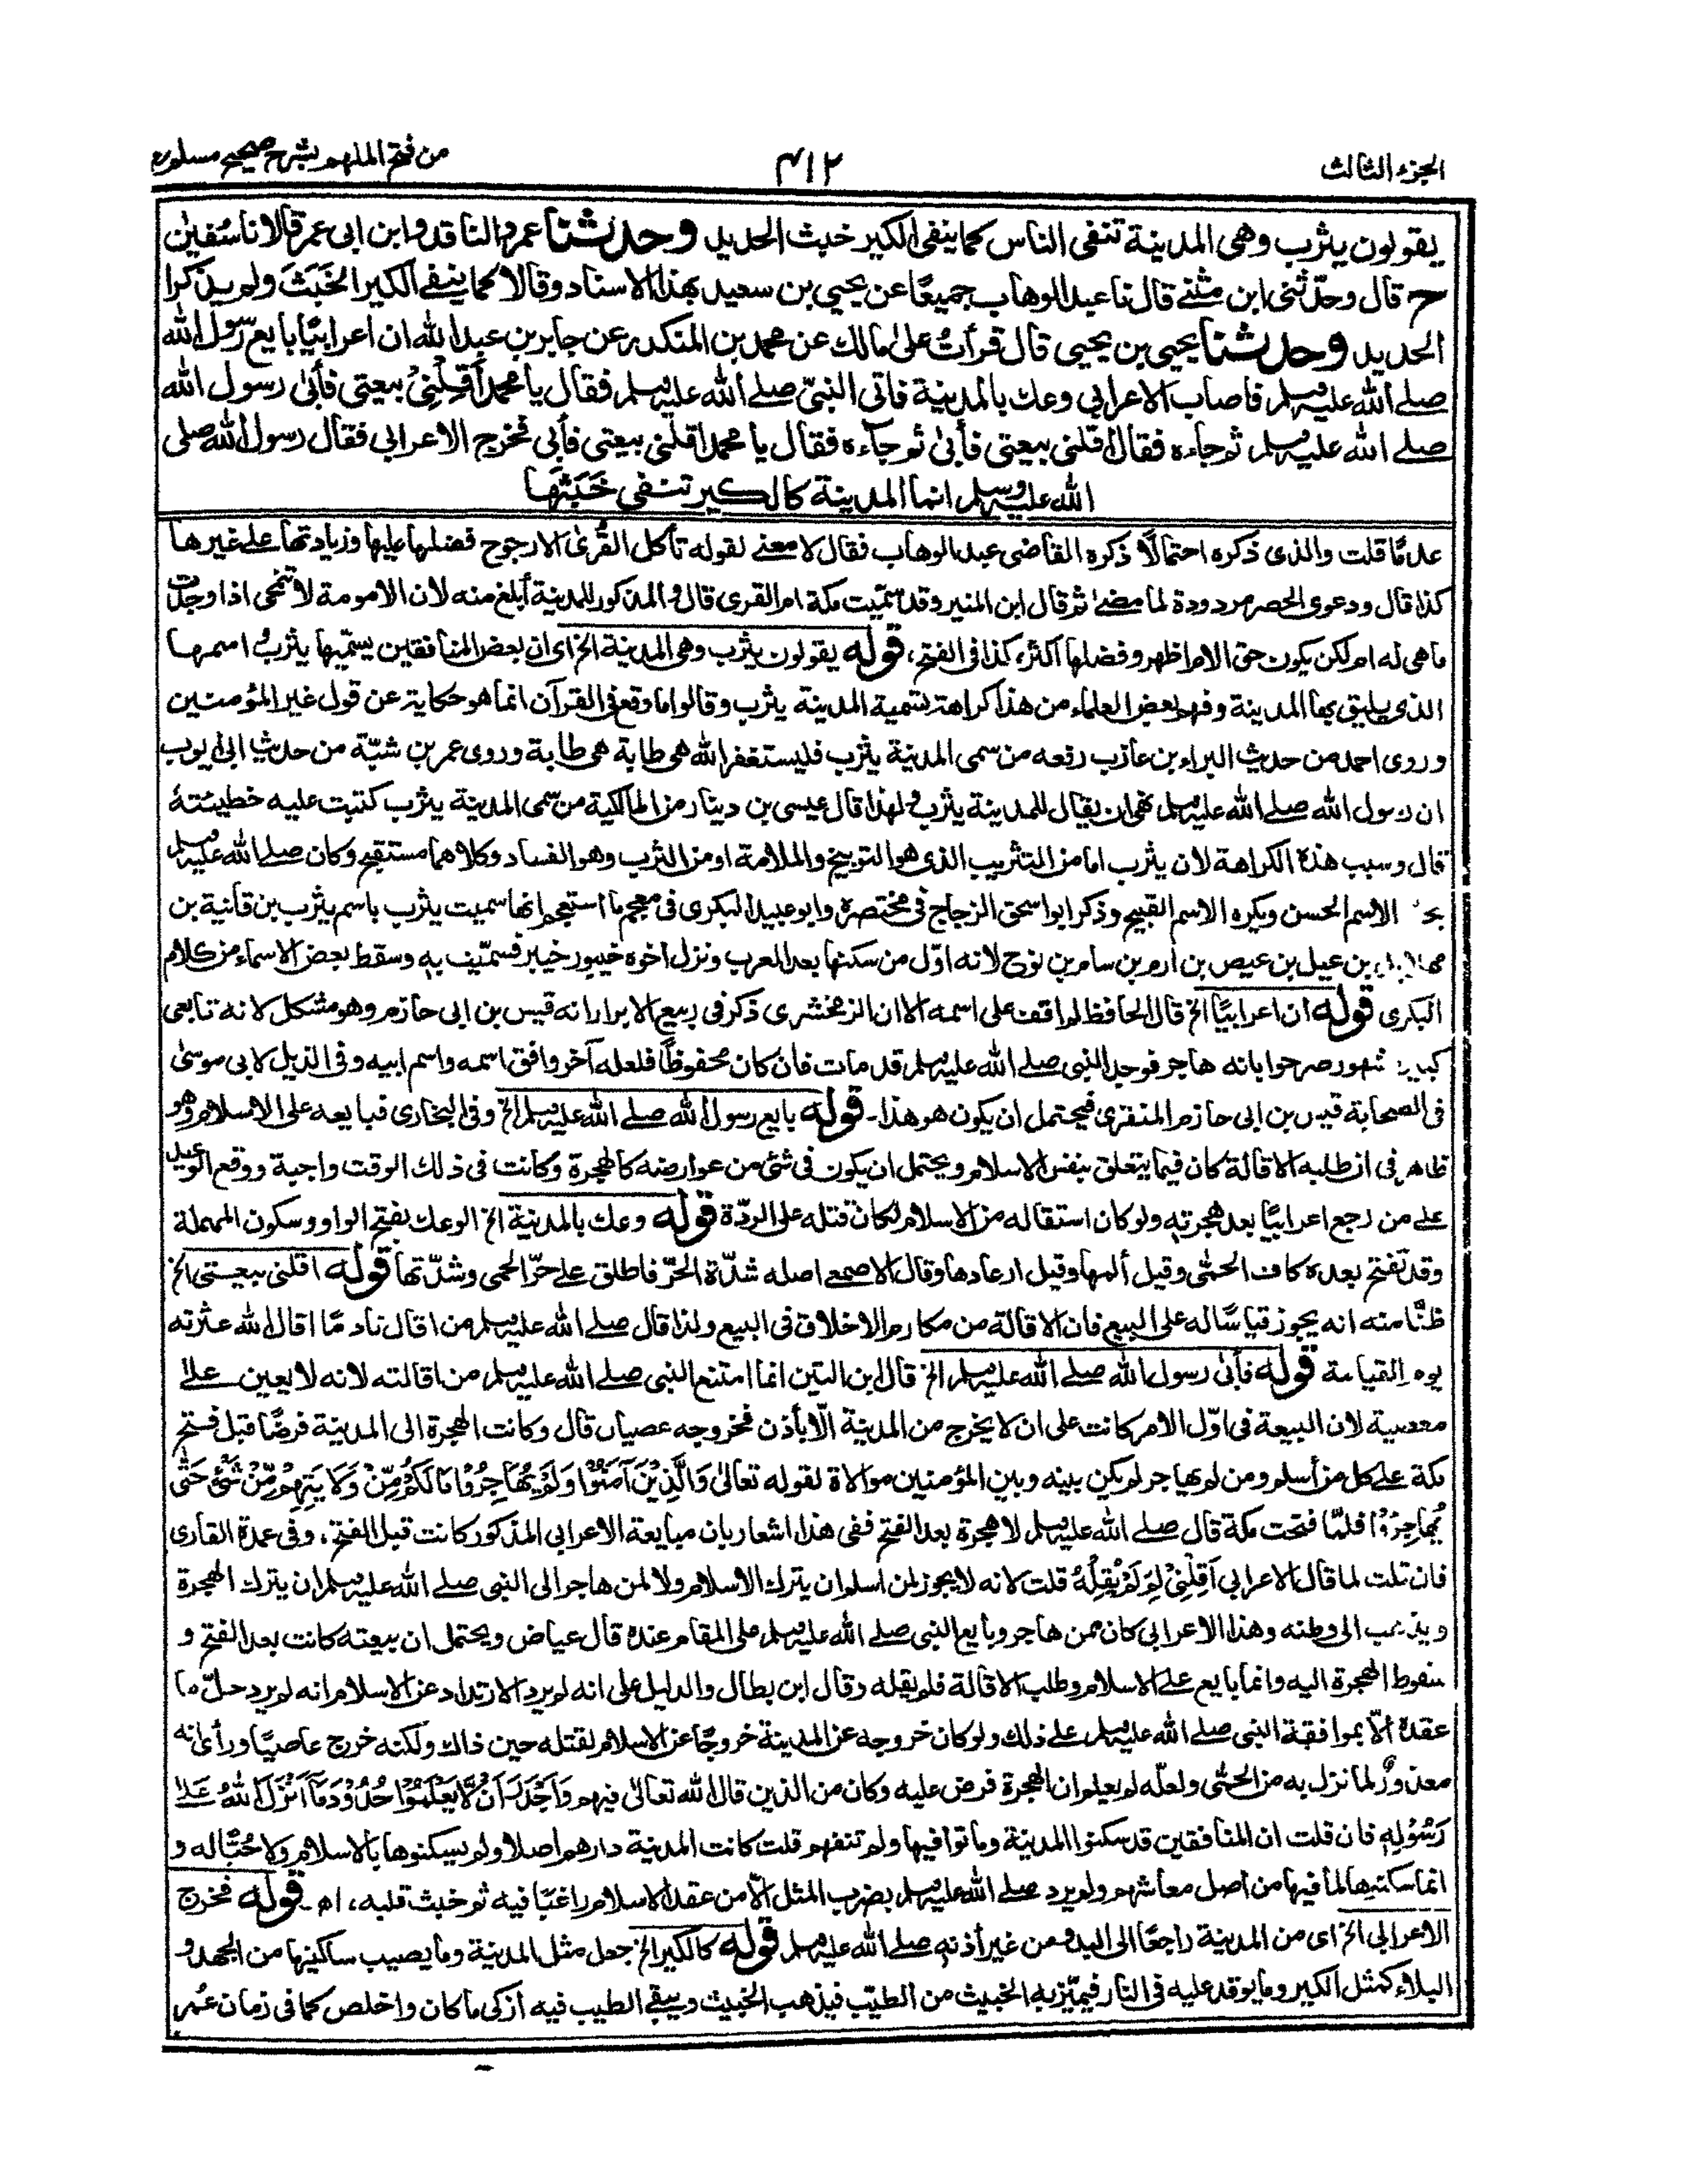 الجزء الثالث
٤١٢
من فتح الملهم بشرح صحيح مسلم
يقولون يثرب وهى المدينة تنفى الناس كما ينفى الكير خبث الحديد وحدثنا عمرو الناقد وابن ابى عمر قالا نا سفين
ح قال وحدّثنى ابن مثنے قال نا عبد الوهاب جميعًا عن يحيى بن سعيد بهذا الاسناد وقالا كما ينفے الكير الخَبَثَ ولم يذكرا
الحديد وحدثنا يحيى بن يحيى قال قرأتُ على مالك عن محمد بن المنكدر عن جابر بن عبد الله ان اعرابيًا بايع رسول الله
صلے الله عليه وسلم فاصاب الاعرابي وعك بالمدينة فاتى النبىّ صلے الله عليه وسلم فقال يا محمد أَقِلْنِىْ بيعتى فأبٰى رسول الله
صلے الله عليه وسلم ثم جاءه فقال اقلنى بيعتى فأبىٰ ثم جآءه فقال يا محمد اقلنى بيعتى فأبى فخرج الاعرابى فقال رسول الله صلى
الله عليه وسلم انما المدينة كالكير تنفى خَبَثَها
عدمًا قلت والذى ذكره احتمالًا ذكره القاضى عبد الوهاب فقال لا معنے لقوله تأكل القُرىٰ الا رجوح فضلها عليها وزيادتها علے غيرها
كذا قال ودعوى الحصر مردودة لما مضىٰ ثم قال ابن المنير وقد سمّيت مكة ام القرى قال والمذكور للمدينة أبلغ منه لان الامومة لا تنمحى اذا وجدت
ما هى له ام لكن يكون حق الام اظهر وفضلها اكثر، كذا فى الفتح، قوله يقولون يثرب وهى المدينة الخ اى ان بعض المنافقين يسمّيها يثرب واسمها
الذى يليق بها المدينة وفهم بعض العلماء من هذا كراهة تسمية المدينة يثرب وقالوا ما وقع فى القرآن انما هو حكاية عن قول غير المؤمنين
وروى احمد من حديث البراء بن عازب رفعه من سمى المدينة يثرب فليستغفر الله هى طابة هى طابة وروى عمر بن شبّة من حديث ابى ايوب
ان رسول الله صلے الله عليه وسلم نهى ان يقال للمدينة يثرب ولهذا قال عيسى بن دينار من المالكية من سمى المدينة يثرب كتبت عليه خطيئتة
قال وسبب هذه الكراهة لان يثرب اما من التثريب الذى هو التوبيخ والملامة او من الثرب وهو الفساد وكلاهما مستقبح وكان صلے الله عليه وسلم
الاسم الحسن ويكره الاسم القبيح وذكر ابو اسحق الزجاج فى مختصره وابو عبيد البكرى فى معجم ما استعجم انها سميت يثرب باسم يثرب بن قانية بن
بن عبيل بن عيص بن ارم بن سام بن نوح لانه اوّل من سكنها بعد العرب ونزل اخوه خيبور خيبر فسمّيت به وسقط بعض الاسماء من كلام
البكرى قوله ان اعرابيًا الخ قال الحافظ لم اقف على اسمه الا ان الزمخشرى ذكر فى ربيع الابرار انه قيس بن ابى حازم وهو مشكل لانه تابعى
كبير مشهور صرحوا بانه هاجر فوجد النبى صلے الله عليه وسلم قد مات فان كان محفوظًا فلعله آخر وافق اسمه واسم ابيه وفى الذيل لابى موسىٰ
فى الصحابة قيس بن ابى حازم المنقرى فيحتمل ان يكون هو هذا۔ قوله بايع رسول الله صلے الله عليه وسلم الخ وفى البخارى فبايعه على الاسلام وهو
ظاهر فى ان طلبه الاقالة كان فيما يتعلق بنفس الاسلام ويحتمل ان يكون فى شئ من عوارضه كالهجرة وكانت فى ذلك الوقت واجبة ووقع الوعيد
علے من رجع اعرابيًا بعد هجرته ولو كان استقاله من الاسلام لكان قتله على الردّة قوله وعك بالمدينة الخ الوعك بفتح الواو وسكون المهملة
وقد تفتح بعده كاف الحمّٰى وقيل ألمها وقيل ارعادها وقال الاصمعى اصله شدّة الحرّ فاطلق علے حرّ الحمى وشدّتها قوله اقلنى بيعتى الخ
ظنًّا منه انه يجوز قياسًا له على البيع فان الاقالة من مكارم الاخلاق فى البيع ولذا قال صلے الله عليه وسلم من اقال نادمًا اقال الله عثرته
يوم القيامة قوله فأبىٰ رسول الله صلے الله عليه وسلم الخ قال ابن التين انما امتنع النبى صلے الله عليه وسلم من اقالته لانه لا يعين علے
معصية لان البيعة فى اوّل الامر كانت على ان لا يخرج من المدينة الّا بأذن فخروجه عصيان قال وكانت الهجرة الى المدينة فرضًا قبل فتح
مكة علے كل من أسلم ومن لم يهاجر لم يكن بينه وبين المؤمنين موالاة لقوله تعالىٰ وَالَّذِيْنَ آمَنُوْا وَلَمْ يُهَاجِرُوْا مَا لَكُمْ مِّنْ وَلَايَتِهِمْ مِّنْ شَىْءٍ حَتّٰى
يُهَاجِرُوْا فلمّا فتحت مكة قال صلے الله عليه وسلم لا هجرة بعد الفتح ففى هذا اشعار بان مبايعة الاعرابى المذكور كانت قبل الفتح، وفى عمدة القارى
فان قلت لما قال الاعرابى اَقِلْنِىْ لِمَ لَمْ يُقِلْهُ قلت لانه لا يجوز لمن اسلم ان يترك الاسلام ولا لمن هاجر الى النبى صلے الله عليه وسلم ان يترك الهجرة
ويذهب الى وطنه وهذا الاعرابى كان ممن هاجر وبايع النبى صلے الله عليه وسلم على المقام عنده قال عياض ويحتمل ان بيعته كانت بعد الفتح و
سقوط الهجرة اليه وانما بايع علے الاسلام وطلب الاقالة فلم يقله وقال ابن بطال والدليل على انه لم يرد الارتداد عن الاسلام انه لم يرد حلّ ما
عقده الّا بموافقة النبى صلے الله عليه وسلم علے ذلك ولو كان خروجه عن المدينة خروجًا عن الاسلام لقتله حين ذاك ولكنه خرج عاصيًا ورأى انه
معذورٌ لما نزل به من الحمّٰى ولعلّه لم يعلم ان الهجرة فرض عليه وكان من الذين قال الله تعالىٰ فيهم وَاَجْدَرُ اَنْ لَّا يَعْلَمُوْا حُدُوْدَ مَآ اَنْزَلَ اللهُ عَلىٰ
رَسُوْلِهٖ فان قلت ان المنافقين قد سكنوا المدينة وماتوا فيها ولم تنفهم قلت كانت المدينة دارهم اصلا ولم يسكنوها بالاسلام ولا حُبًّا له و
انما سكنوها لما فيها من اصل معاشهم ولم يرد صلے الله عليه وسلم بضرب المثل الّا من عقد الاسلام راغبًا فيه ثم خبث قلبه، اھ۔ قوله فخرج
الاعرابى الخ اى من المدينة راجعًا الى البدو من غير أذنه صلے الله عليه وسلم قوله كالكير الخ جعل مثل المدينة وما يصيب ساكنيها من الجهد و
البلاء كمثل الكير وما يوقد عليه فى النار فيميّز به الخبيث من الطيّب فيذهب الخبيث ويبقے الطيب فيه أزكى ما كان واخلص كما فى زمان عمر